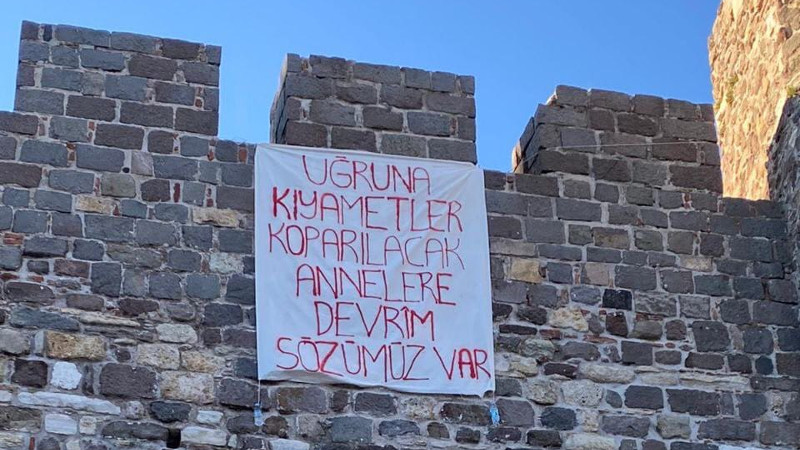 UĞRUNA
KIYAMETLER
KOPARILACAK
ANNELERE
DEVRİM
SÖZÜMÜZ VAR